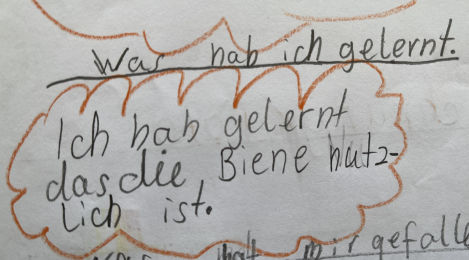 Was hab ich gelernt.
Ich hab gelernt
das die Biene nutz-
lich ist.
mir gefalle